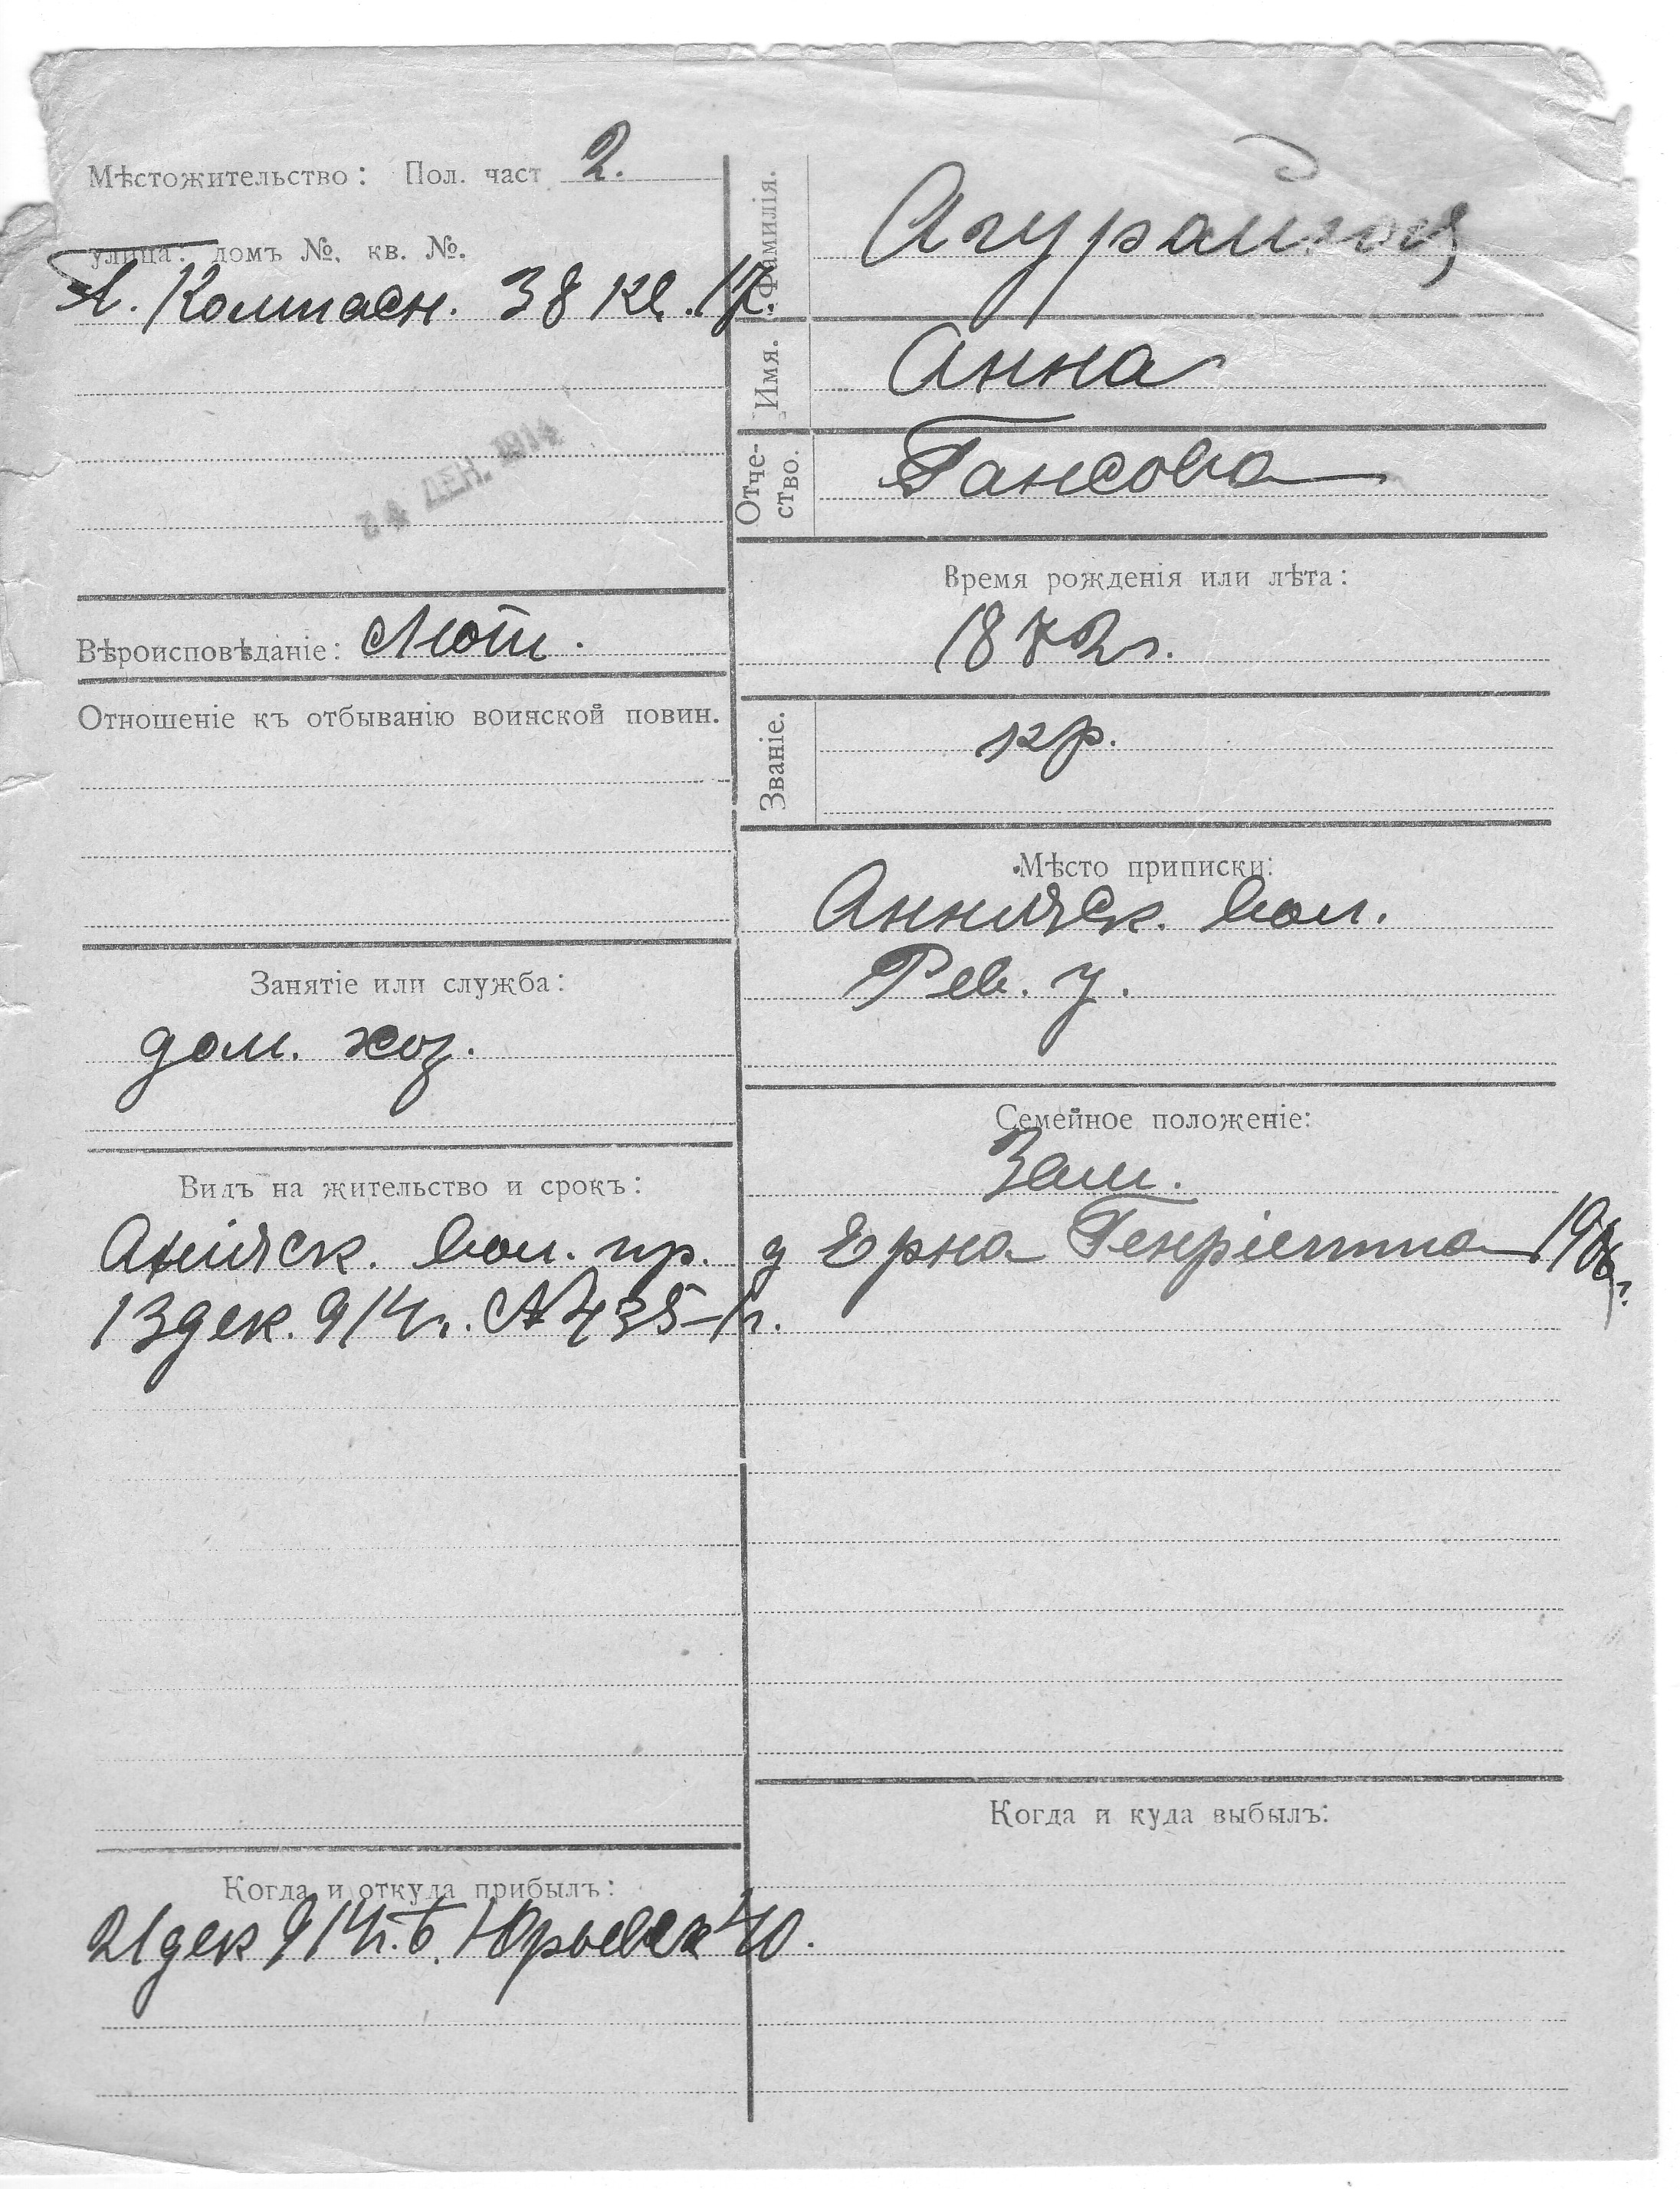 Мѣстожительство: Пол. част 2.
улица: домъ №. кв. №.
Компасн. 38 кв. 17.
24 ДЕК. 1914
Вѣроисповѣданіе: Лют.
Отношеніе къ отбыванію воинской повин.
Занятіе или служба:
дом. хоз.
Видъ на жительство и срокъ:
Аниіяск. вол. пр.
13 дек. 914 г. № 435 – 1 г.
Когда и откуда прибылъ:
21 дек 914 г. б. Юрьевск 40.
Фамилія.
Имя. Анна
Отчество. Гансова
Время рожденія или лѣта:
1872 г.
Званіе. кр.
Мѣсто приписки:
Анніяск. вол.
Рев. у.
Семейное положеніе:
Зам.
д Ерна Генріетта
Когда и куда выбылъ: